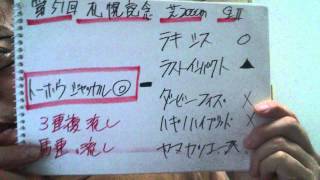 第51回 札幌記念 芝2000m GⅡ
ラキシス ○
ラストインパクト ▲
トーホウジャッカル ◎ ー
ダービーフィズ ✕
ハギノハイブリッド ✕
3連複流し
馬連 流し
ヤマカツエース